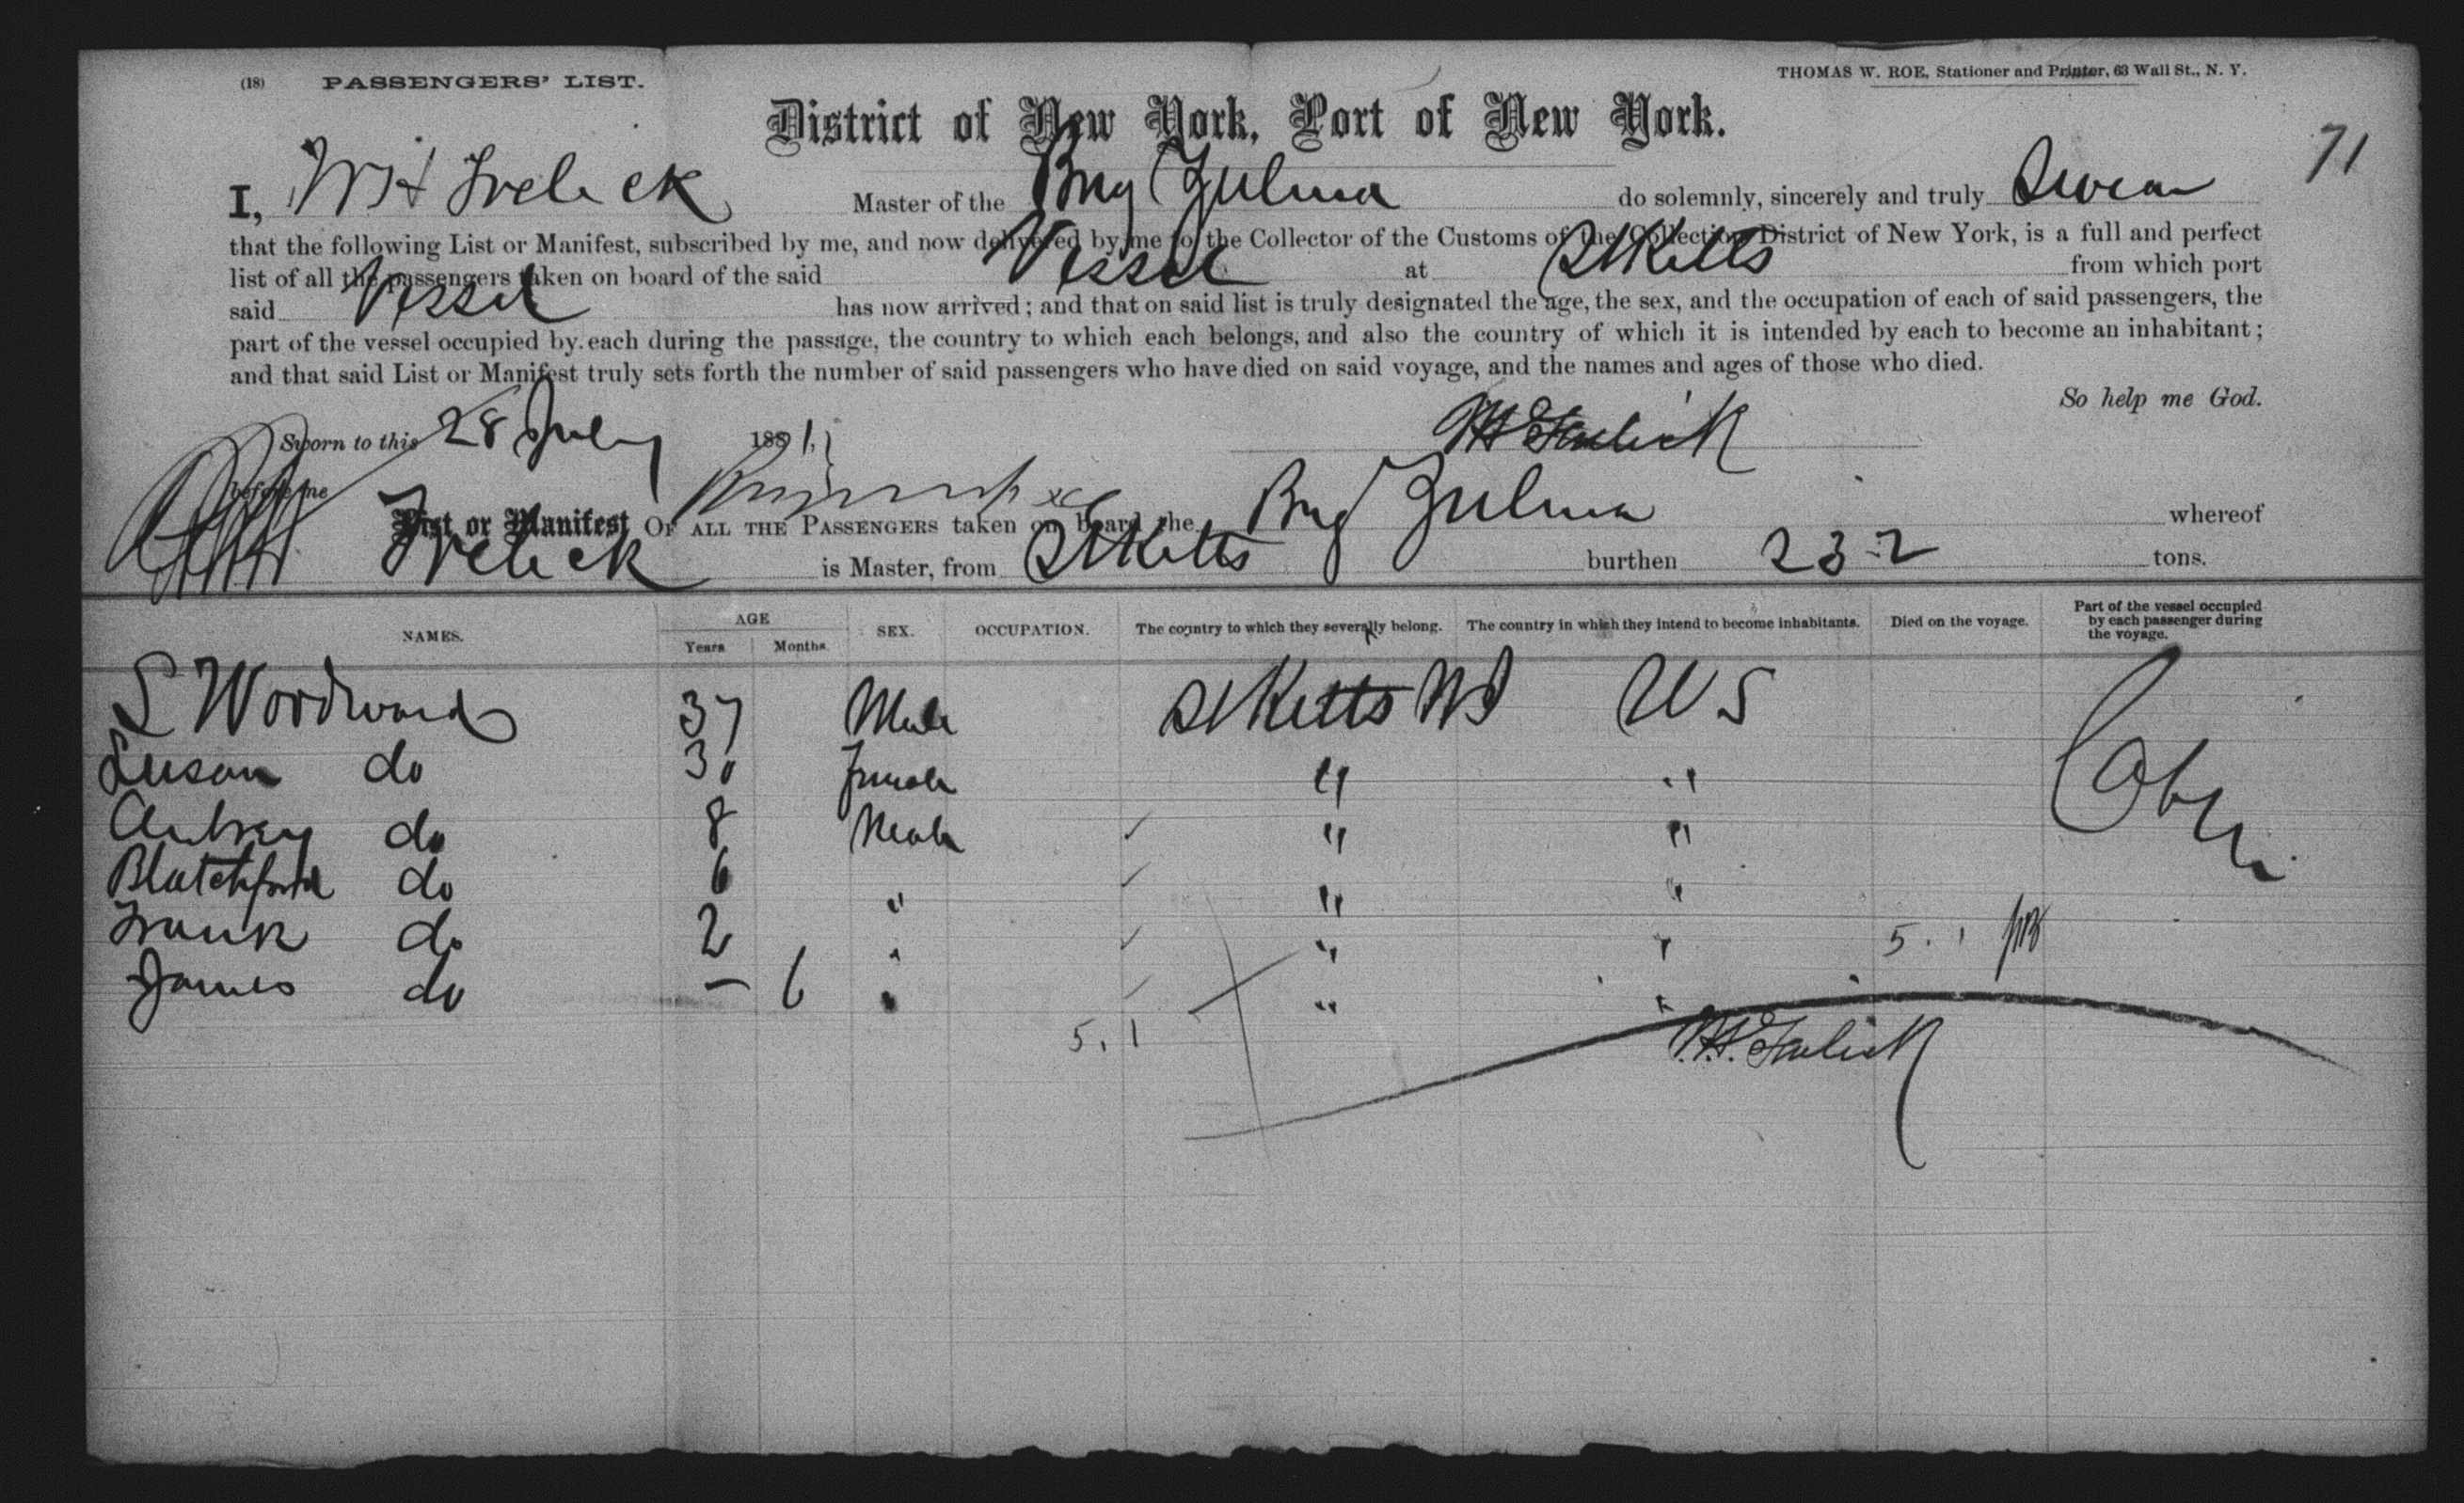 (18) PASSENGERS' LIST.
THOMAS W. ROE, Stationer and Printer, 63 Wall St., N. Y.
District of New York, Port of New York.
71
I, WH Trelick Master of the Brig Zulma do solemnly, sincerely and truly Swear
that the following List or Manifest, subscribed by me, and now delivered by me to the Collector of the Customs of the Collection District of New York, is a full and perfect
list of all the passengers taken on board of the said Vessel at St Kitts from which port
said Vessel has now arrived; and that on said list is truly designated the age, the sex, and the occupation of each of said passengers, the
part of the vessel occupied by each during the passage, the country to which each belongs, and also the country of which it is intended by each to become an inhabitant;
and that said List or Manifest truly sets forth the number of said passengers who have died on said voyage, and the names and ages of those who died.
So help me God.
Sworn to this 28 July 1891
before me
List or Manifest OF ALL THE PASSENGERS taken on board the Brig Zulma whereof
Trelick is Master, from St Kitts burthen 232 tons.
NAMES. AGE Years Months SEX. OCCUPATION. The country to which they severally belong. The country in which they intend to become inhabitants. Died on the voyage. Part of the vessel occupied by each passenger during the voyage.
S Woodward 37 Male St Kitts WI US Cabin
Susan do 30 Female " "
Aubrey do 8 Male " "
Blatchford do 6 " " "
Frank do 2 " " " 5.1
James do – 6 " " "
5.1